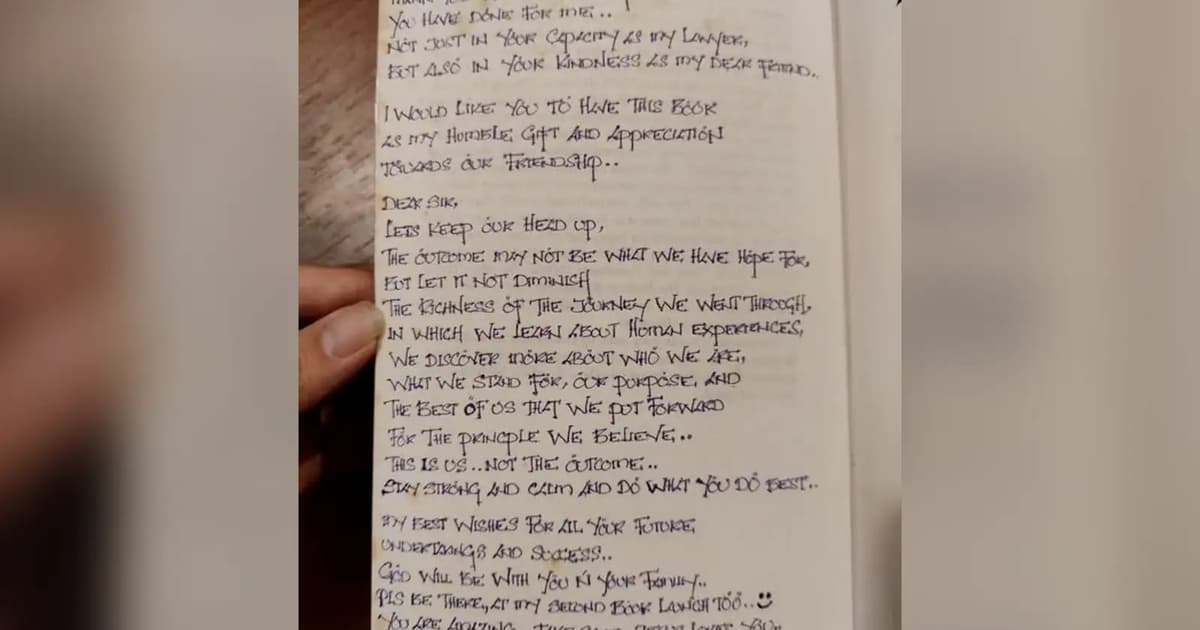 YOU HAVE DONE FOR ME..
NOT JUST IN YOUR CAPACITY AS MY LAWYER,
BUT ALSO IN YOUR KINDNESS AS MY DEAR FRIEND..
I WOULD LIKE YOU TO HAVE THIS BOOK
AS MY HUMBLE GIFT AND APPRECIATION
TOWARDS OUR FRIENDSHIP..
DEAR SIR,
LETS KEEP OUR HEAD UP,
THE OUTCOME MAY NOT BE WHAT WE HAVE HOPE FOR,
BUT LET IT NOT DIMINISH
THE RICHNESS OF THE JOURNEY WE WENT THROUGH,
IN WHICH WE LEARN ABOUT HUMAN EXPERIENCES,
WE DISCOVER MORE ABOUT WHO WE ARE,
WHAT WE STAND FOR, OUR PURPOSE, AND
THE BEST OF US THAT WE PUT FORWARD
FOR THE PRINCPLE WE BELIEVE..
THIS IS US.. NOT THE OUTCOME..
STAY STRONG AND CALM AND DO WHAT YOU DO BEST..
MY BEST WISHES FOR ALL YOUR FUTURE
UNDERTAKINGS AND SUCCESS..
GOD WILL BE WITH YOU N YOUR FAMILY..
PLS BE THERE,, AT MY SECOND BOOK LAUNCH TOO.. :)
YOU ARE AMAZING